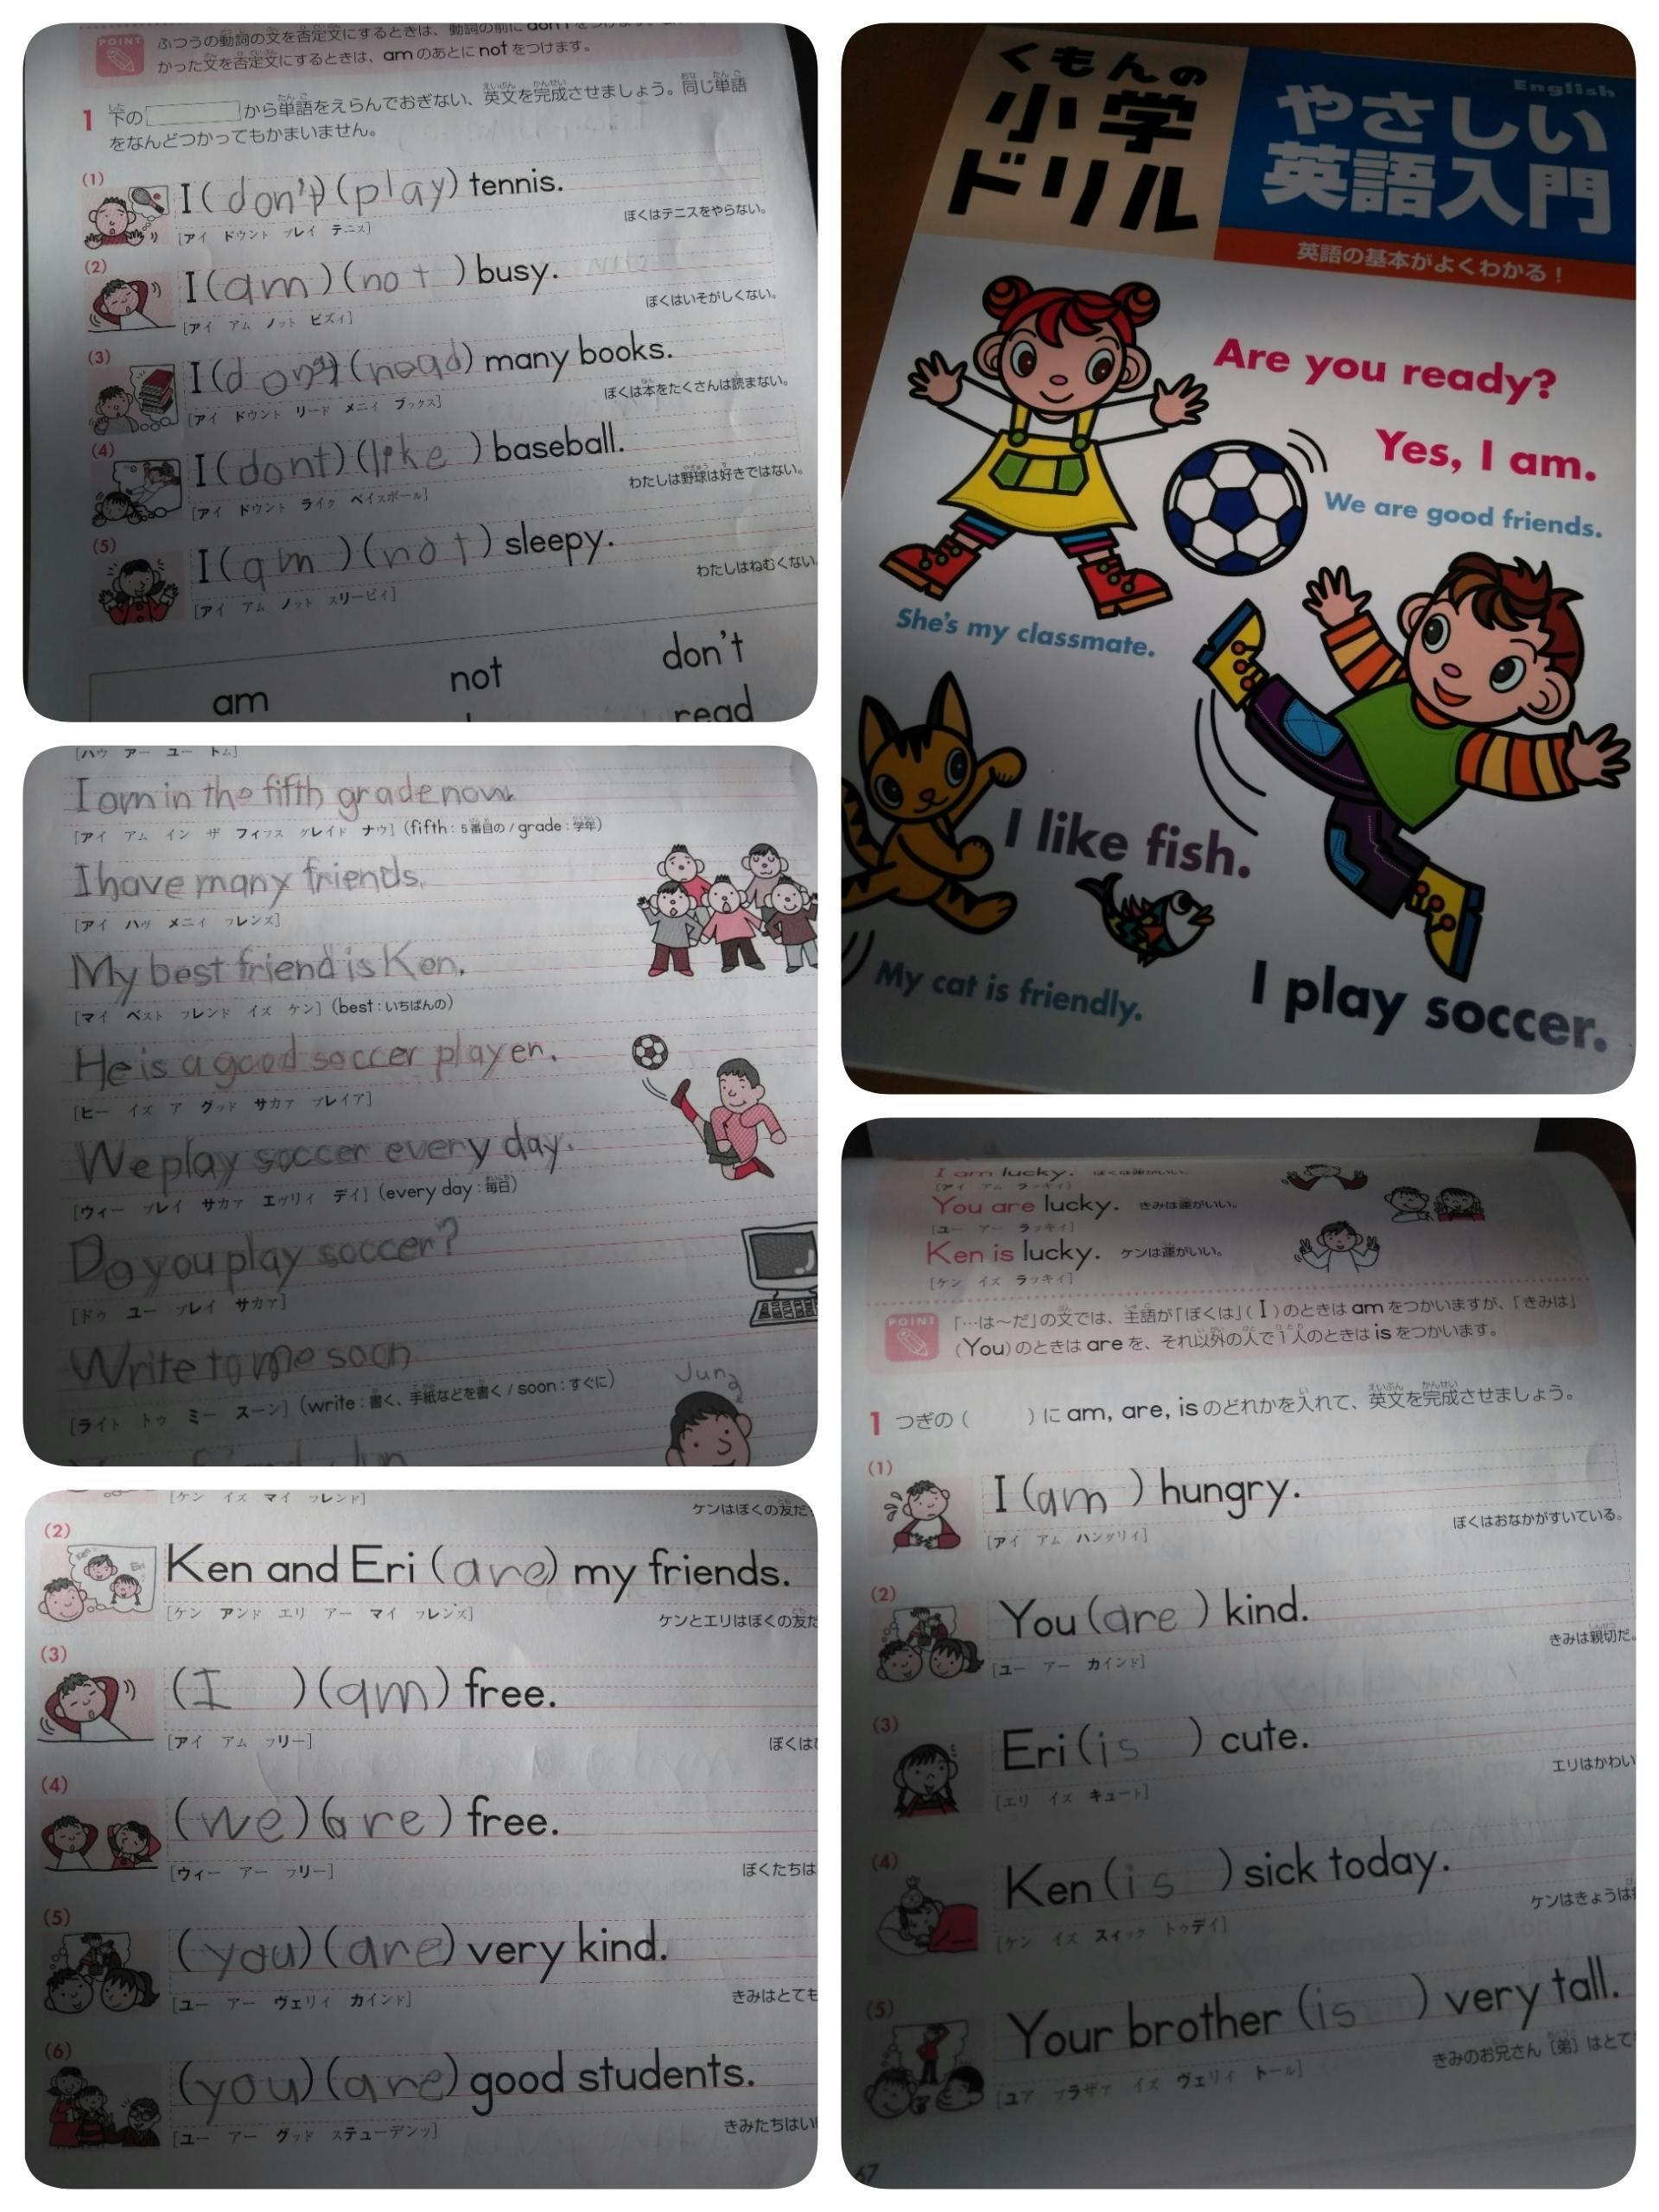 POINT
ふつうの動詞の文を否定文にするときは、動詞の前に don't を
かった文を否定文にするときは、am のあとに not をつけます。
1 下の[ ]から単語をえらんでおぎない、英文を完成させましょう。同じ単語
をなんどつかってもかまいません。
(1) I ( don't ) ( play ) tennis.
ぼくはテニスをやらない。
[アイ ドウント プレイ テニス]
(2) I ( am ) ( not ) busy.
ぼくはいそがしくない。
[アイ アム ノット ビズィ]
(3) I ( don't ) ( read ) many books.
ぼくは本をたくさんは読まない。
[アイ ドウント リード メニィ ブックス]
(4) I ( dont ) ( like ) baseball.
わたしは野球は好きではない。
[アイ ドウント ライク ベイスボール]
(5) I ( am ) ( not ) sleepy.
わたしはねむくない
[アイ アム ノット スリーピィ]
am not don't
read
くもんの
小学
ドリル
English
やさしい
英語入門
英語の基本がよくわかる!
Are you ready?
Yes, I am.
We are good friends.
She's my classmate.
I like fish.
My cat is friendly.
I play soccer.
[ハウ アー ユー トム]
I am in the fifth grade now.
[アイ アム イン ザ フィフス グレイド ナウ] (fifth:5番目の/grade:学年)
I have many friends.
[アイ ハヴ メニイ フレンズ]
My best friend is Ken.
[マイ ベスト フレンド イズ ケン] (best:いちばんの)
He is a good soccer player.
[ヒー イズ ア グッド サカァ プレイア]
We play soccer every day.
[ウィー プレイ サカァ エヴリィ デイ] (every day:毎日)
Do you play soccer?
[ドゥ ユー プレイ サカァ]
Write to me soon
[ライト トゥ ミー スーン] (write:書く、手紙などを書く/soon:すぐに)
Jun
[ケン イズ マイ フレンド]
ケンはぼくの友だ
(2) Ken and Eri ( are ) my friends.
[ケン アンド エリ アー マイ フレンズ]
ケンとエリはぼくの友だ
(3) ( I ) ( am ) free.
[アイ アム フリー]
ぼくは
(4) ( we ) ( are ) free.
[ウィー アー フリー]
ぼくたちは
(5) ( you ) ( are ) very kind.
[ユー アー ヴェリィ カインド]
きみはとても
(6) ( you ) ( are ) good students.
[ユー アー グッド ステューデンツ]
きみたちはい
I am lucky. ぼくは運がいい。
[アイ アム ラッキイ]
You are lucky. きみは運がいい。
[ユー アー ラッキイ]
Ken is lucky. ケンは運がいい。
[ケン イズ ラッキイ]
POINT
「…は〜だ」の文では、主語が「ぼくは」(I)のときは am をつかいますが、「きみは」
(You)のときは are を、それ以外の人で1人のときは is をつかいます。
1 つぎの( )に am, are, is のどれかを入れて、英文を完成させましょう。
(1) I ( am ) hungry.
[アイ アム ハングリイ]
ぼくはおなかがすいている。
(2) You ( are ) kind.
[ユー アー カインド]
きみは親切だ。
(3) Eri ( is ) cute.
[エリ イズ キュート]
エリはかわい
(4) Ken ( is ) sick today.
[ケン イズ スィック トゥデイ]
ケンはきょうは
(5) Your brother ( is ) very tall.
[ユア ブラザァ イズ ヴェリィ トール]
きみのお兄さん〔弟〕はとて
67